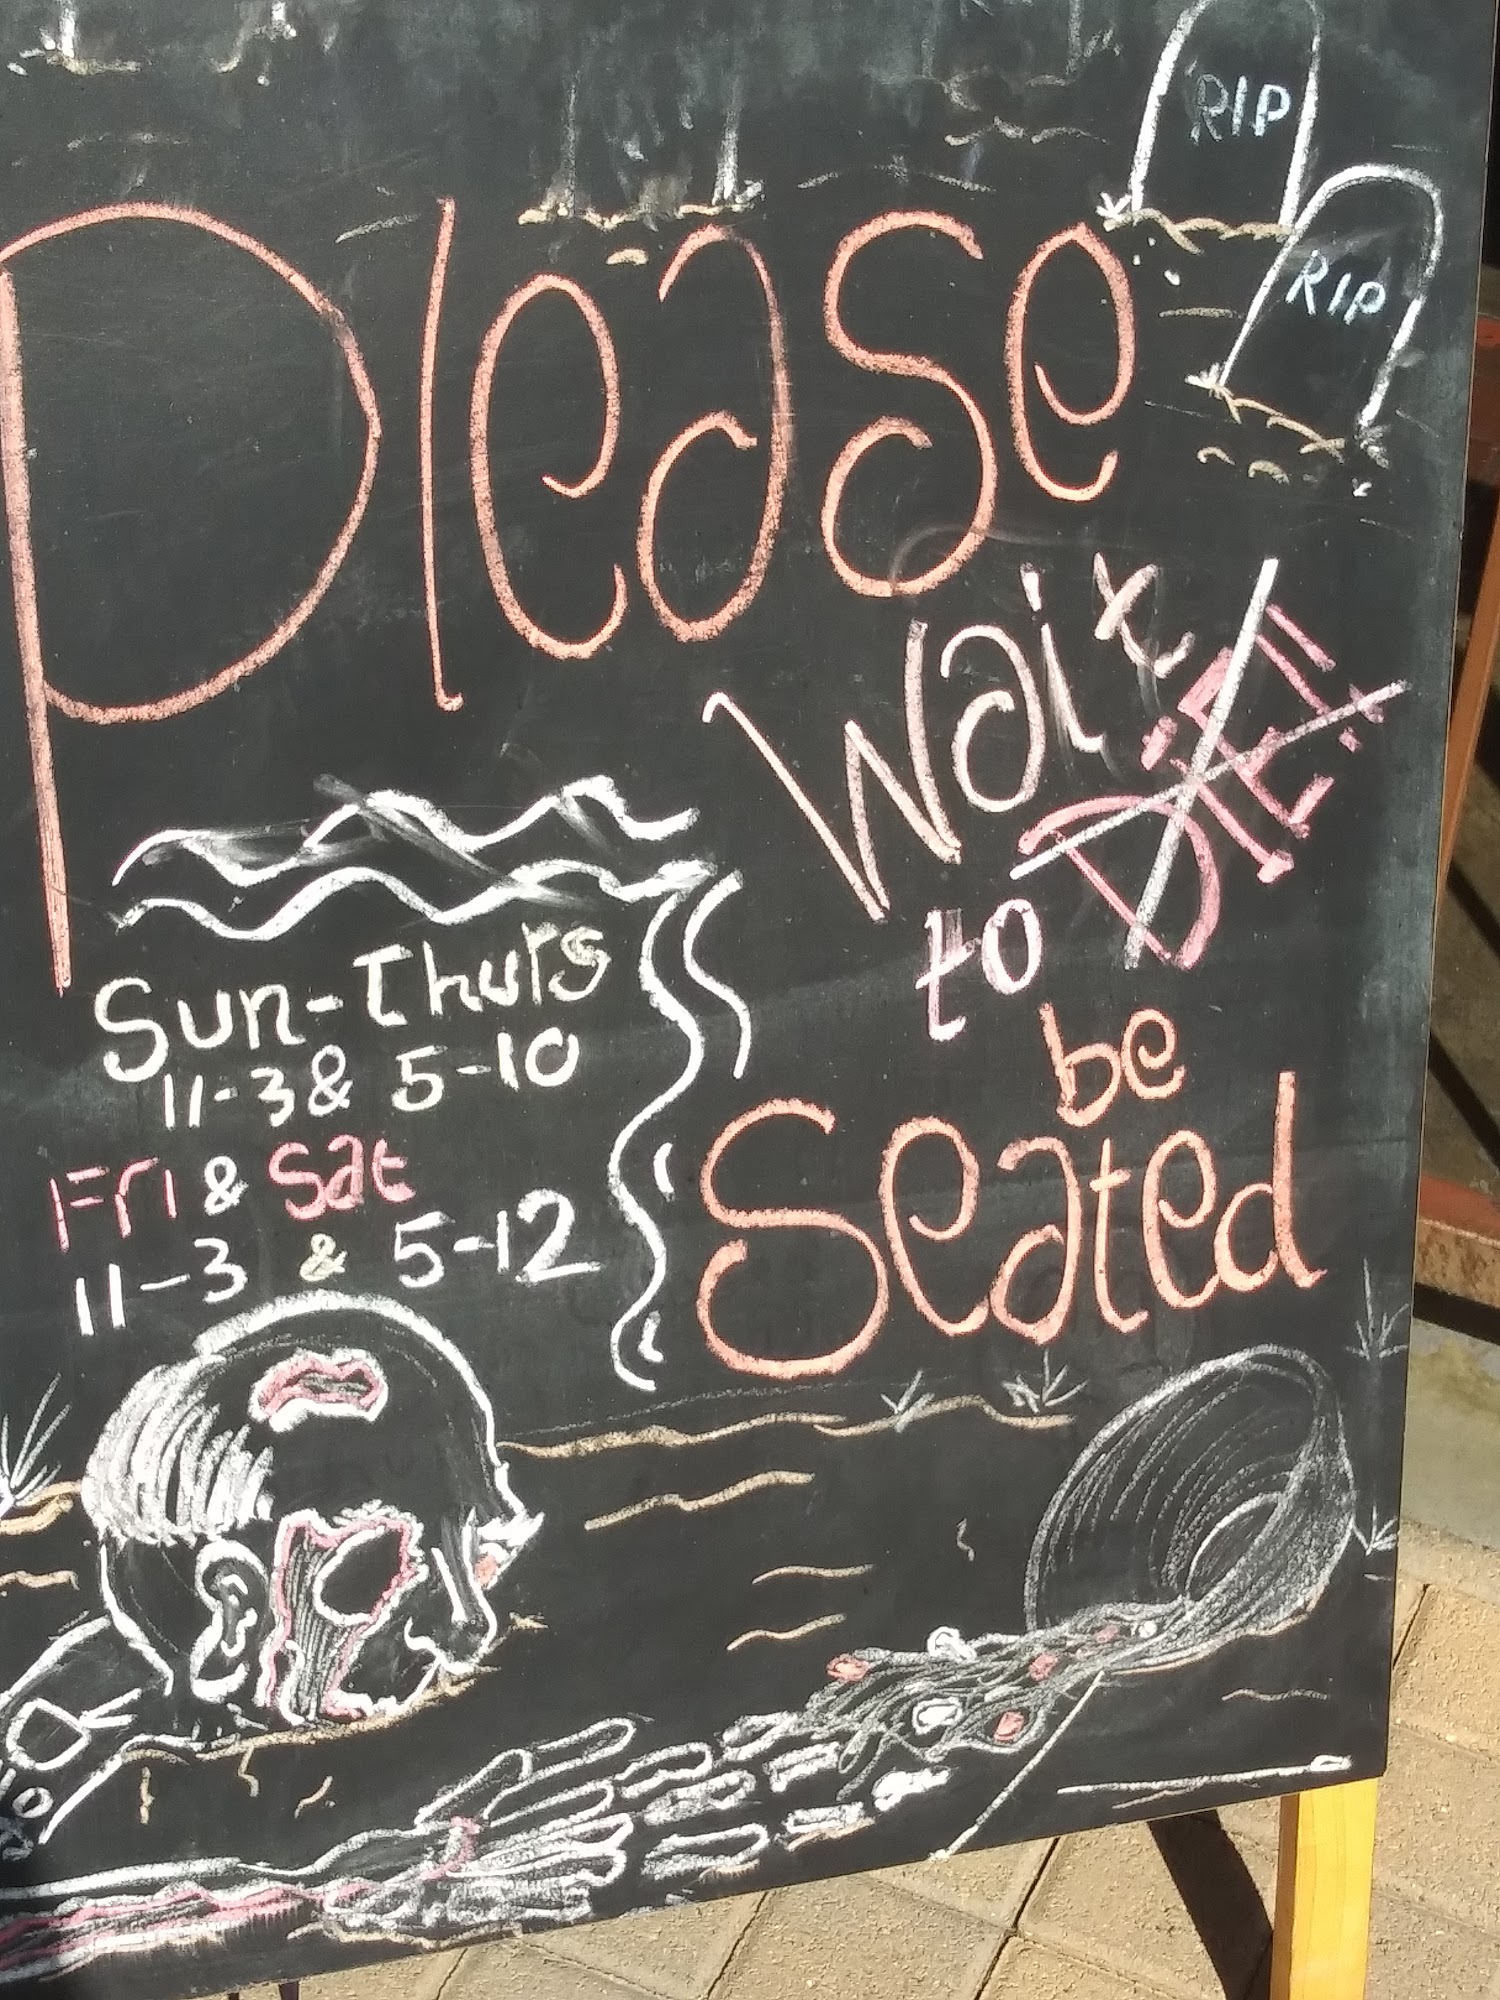 RIP
RIP
Please
Wait
to DIE!!
be
Seated
Sun-Thurs
11-3 & 5-10
Fri & Sat
11-3 & 5-12